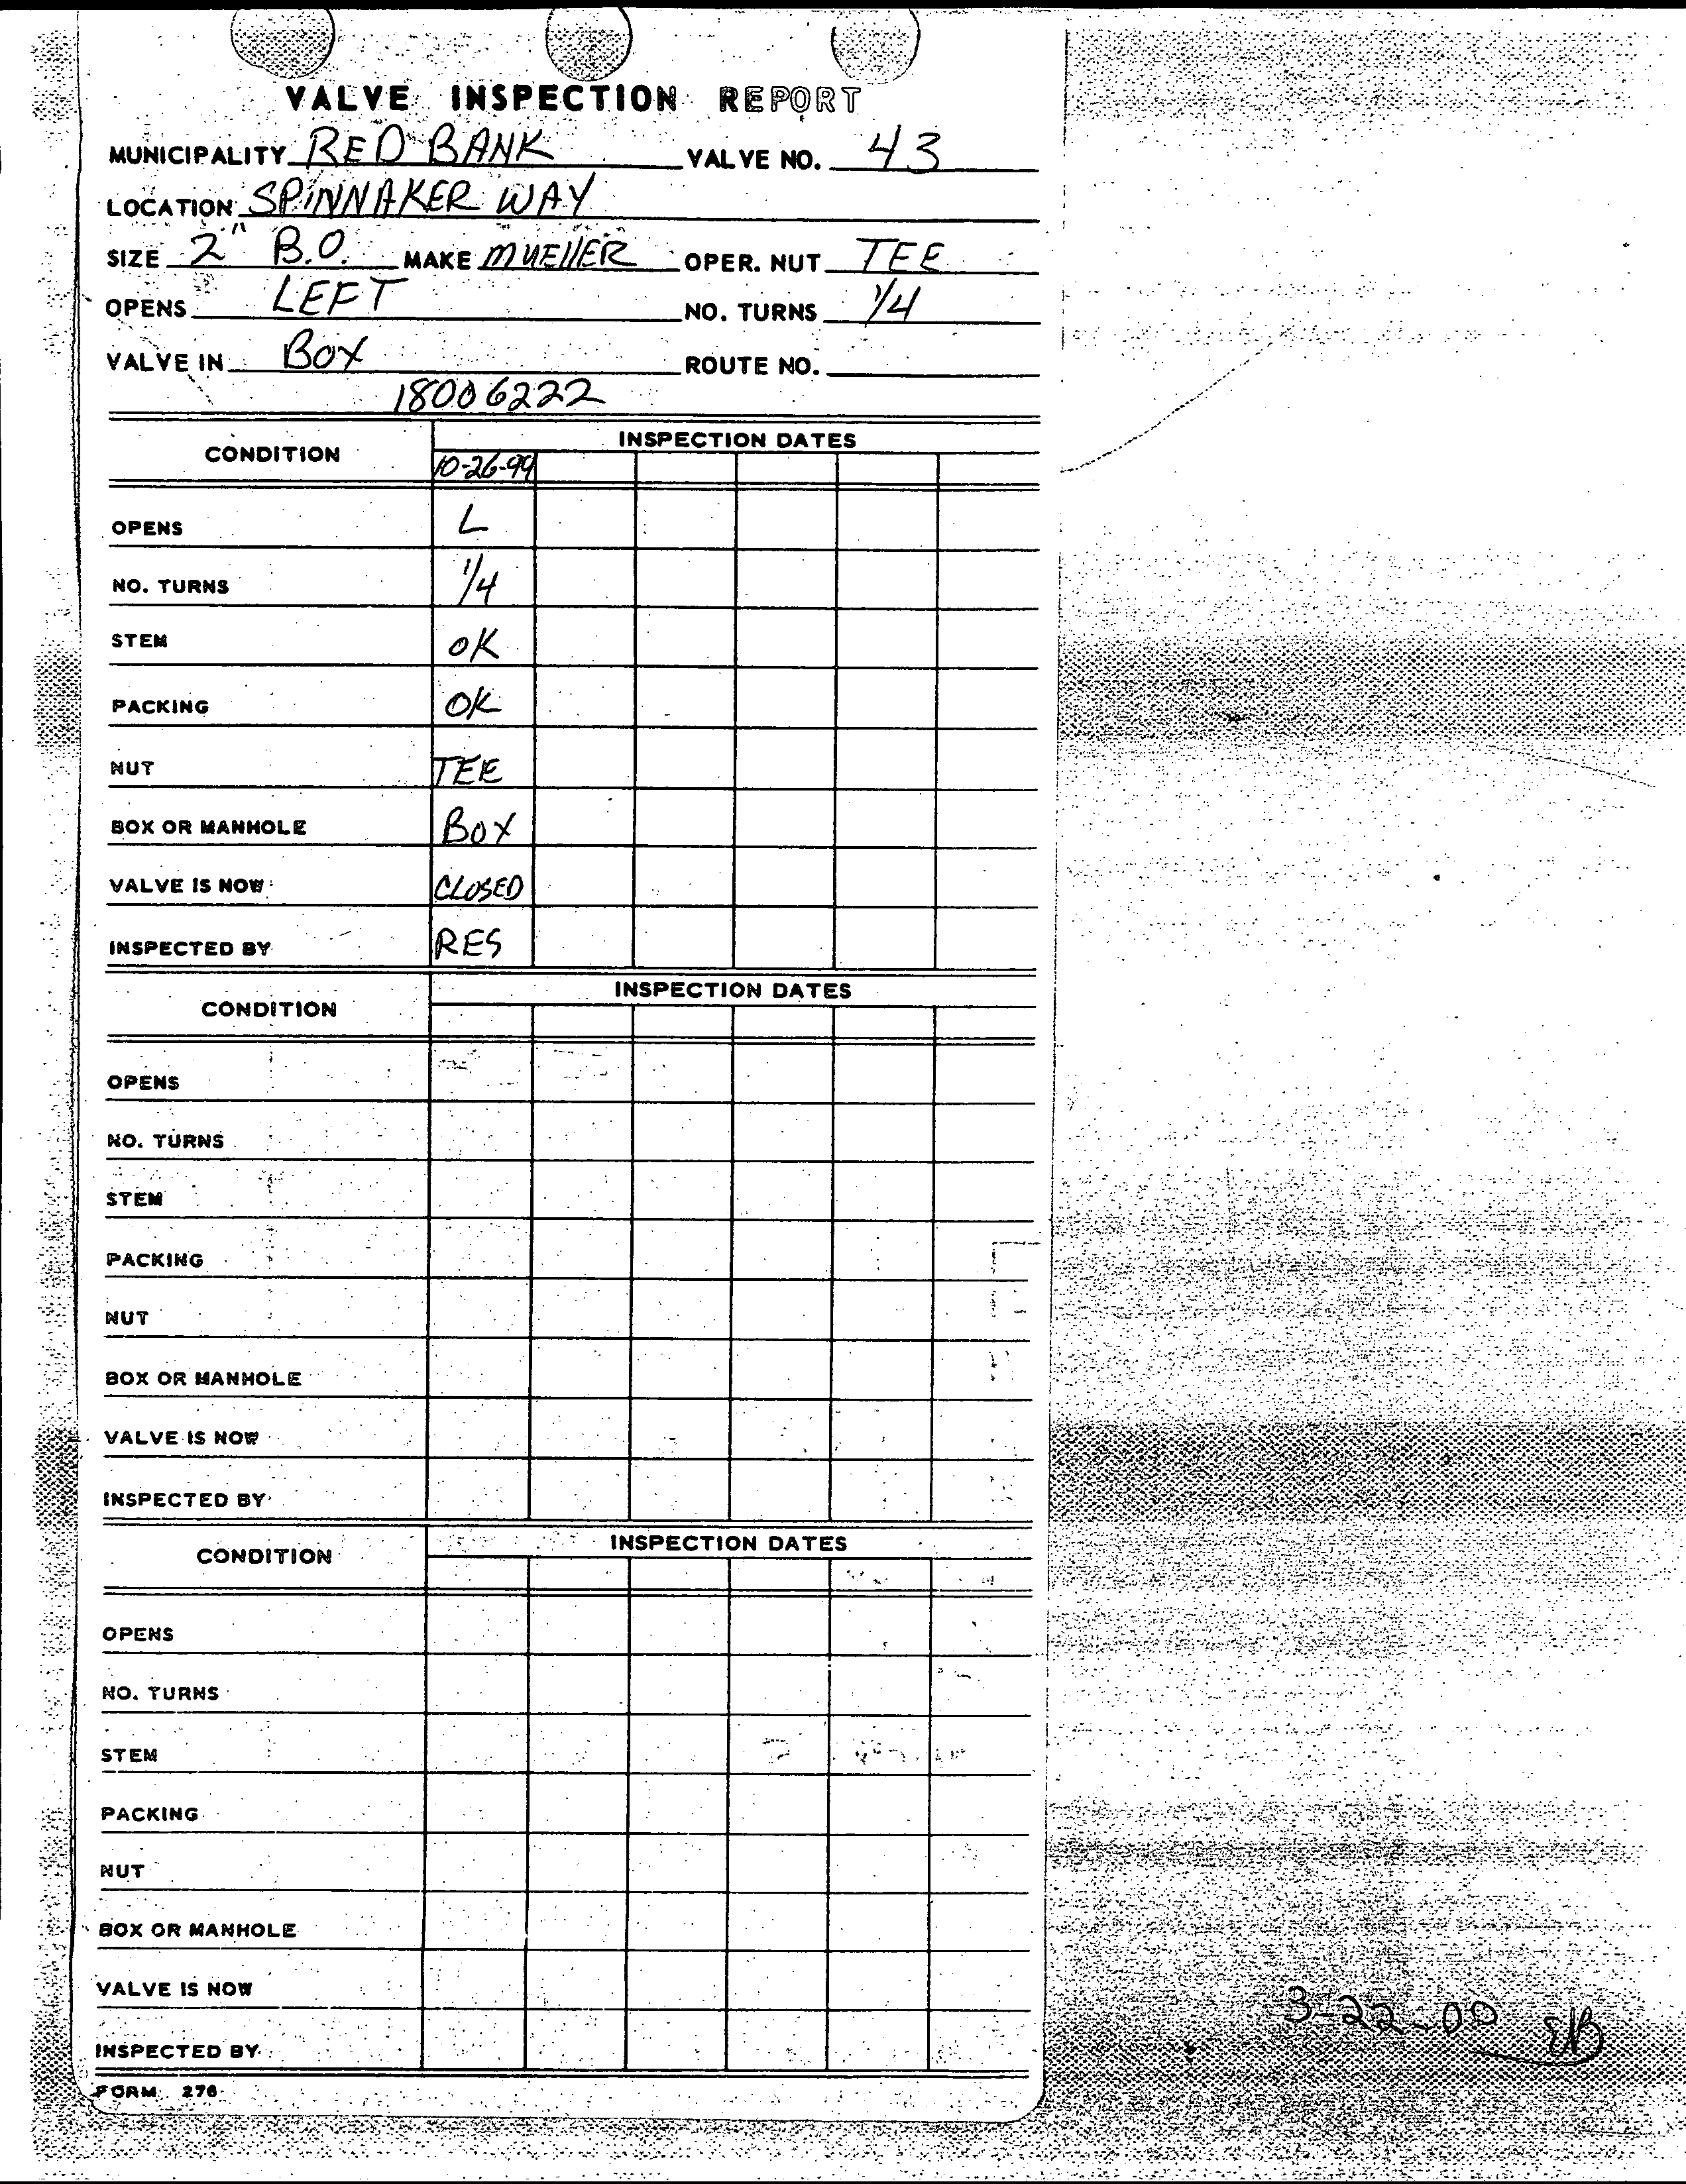 VALVE INSPECTION REPORT
MUNICIPALITY RED BANK VALVE NO. 43
LOCATION SPINNAKER WAY
SIZE 2" B.O. MAKE MUEllER OPER. NUT TEE
OPENS LEFT NO. TURNS 1/4
VALVE IN BOX ROUTE NO.
18006222
CONDITION INSPECTION DATES
10-26-99
OPENS L
NO. TURNS 1/4
STEM OK
PACKING OK
NUT TEE
BOX OR MANHOLE BOX
VALVE IS NOW CLOSED
INSPECTED BY RES
CONDITION INSPECTION DATES
OPENS
NO. TURNS
STEM
PACKING
NUT
BOX OR MANHOLE
VALVE IS NOW
INSPECTED BY
CONDITION INSPECTION DATES
OPENS
NO. TURNS
STEM
PACKING
NUT
BOX OR MANHOLE
VALVE IS NOW
INSPECTED BY
FORM 276
3-22-00